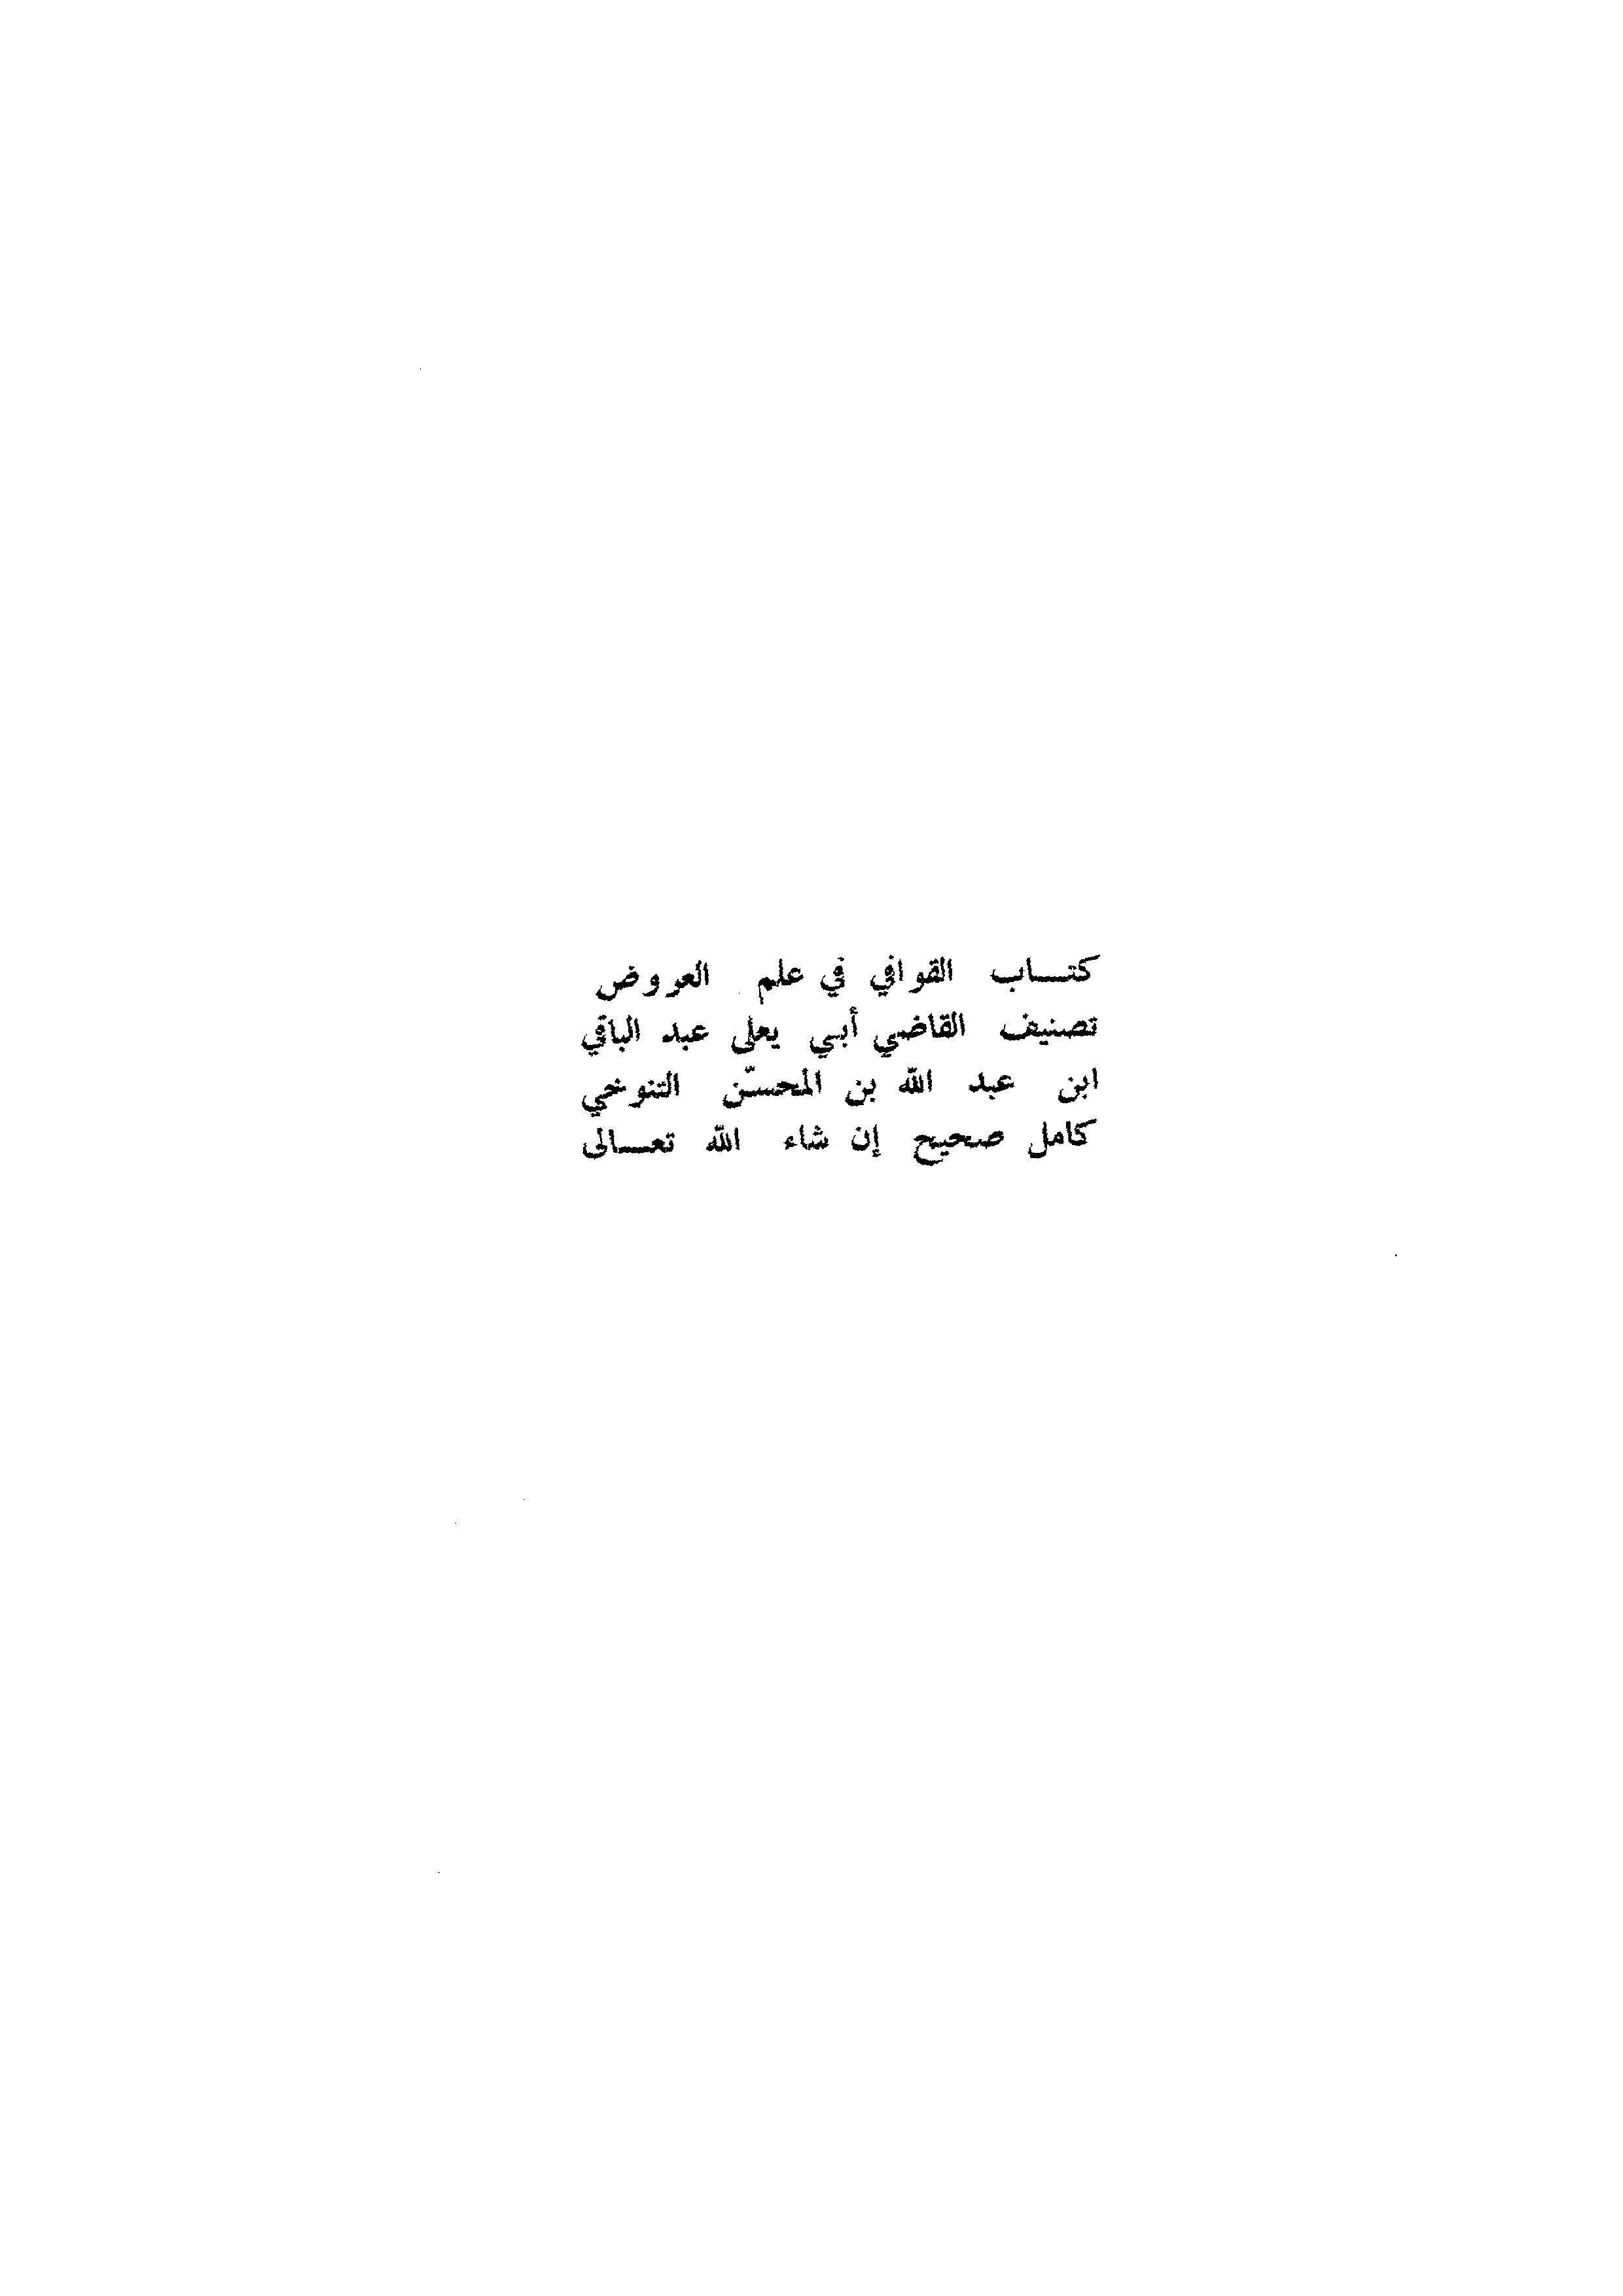 كتاب القوافي في علم العروض
تصنيف القاضي أبي يعلى عبد الباقي
ابن عبد الله بن المحسّن التنوخي
كامل صحيح إن شاء الله تعالى